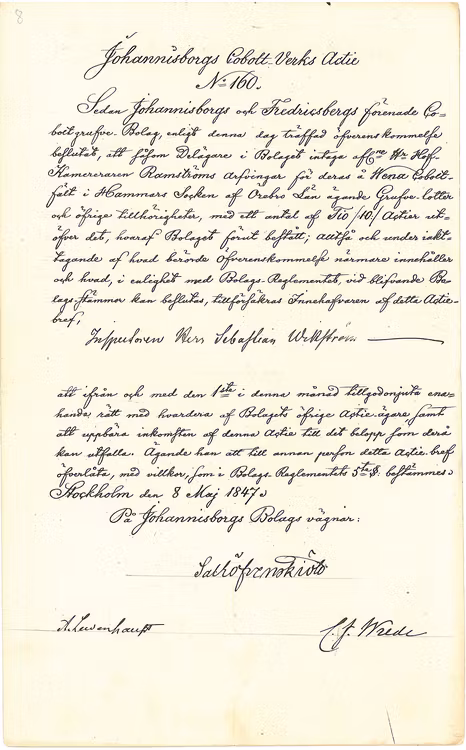 8
Johannisborgs Cobolt-Verks Actie
No 160.
Sedan Johannisborgs och Fredricsbergs förenade Co=
boltgrufve-Bolag, enligt denna dag träffad öfverenskommelse
beslutat, att såsom Delägare i Bolaget intaga Hof-
Kamereraren Ramströms arfvingar för deras å Wena Cobolt-
fält i Hammars Socken af Örebro Län ägande Grufve-lotter
och öfrige tillhörigheter, med ett antal af Tio /10/ Actier ut-
öfver det, hvaraf Bolaget förut bestått; alltså och under iakt-
tagande af hvad berörde öfverenskommelse närmare innehåller
och hvad, i enlighet med Bolags-Reglementet, vid blifvande Bo-
lags-stämmor kan beslutas, tillförsäkras Innehafveren af detta Actie-
bref,
Inspectoren Herr Sebastian
att ifrån och med den 1sta i denna månad tillgodonjuta ena-
handa rätt med hvardera af Bolagets öfrige Actie-ägare samt
att uppbära inkomsten af denna Actie till det belopp som derå
kan utfalla. Ägande han att till annan person detta Actie-bref
öfverlåta, med villkor, som i Bolags-Reglementets 5te §. bestämmes.
Stockholm den 8 Maj 1847.
På Johannisborgs Bolags vägnar:
A. Lewenhaupt
C. J. Wrede